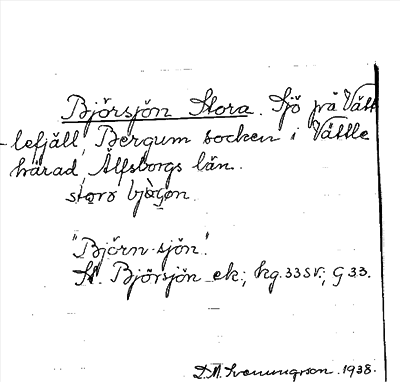 Björsjön Stora. Sjö på Vätt
-lefjäll, Bergum socken i Vättle
härad, Älfsborgs län.
storo bjȧgon
"Björn-sjön".
St. Björsjön ek.; kg. 33 SV; G 33.
D.M. Svenungsson. 1938.